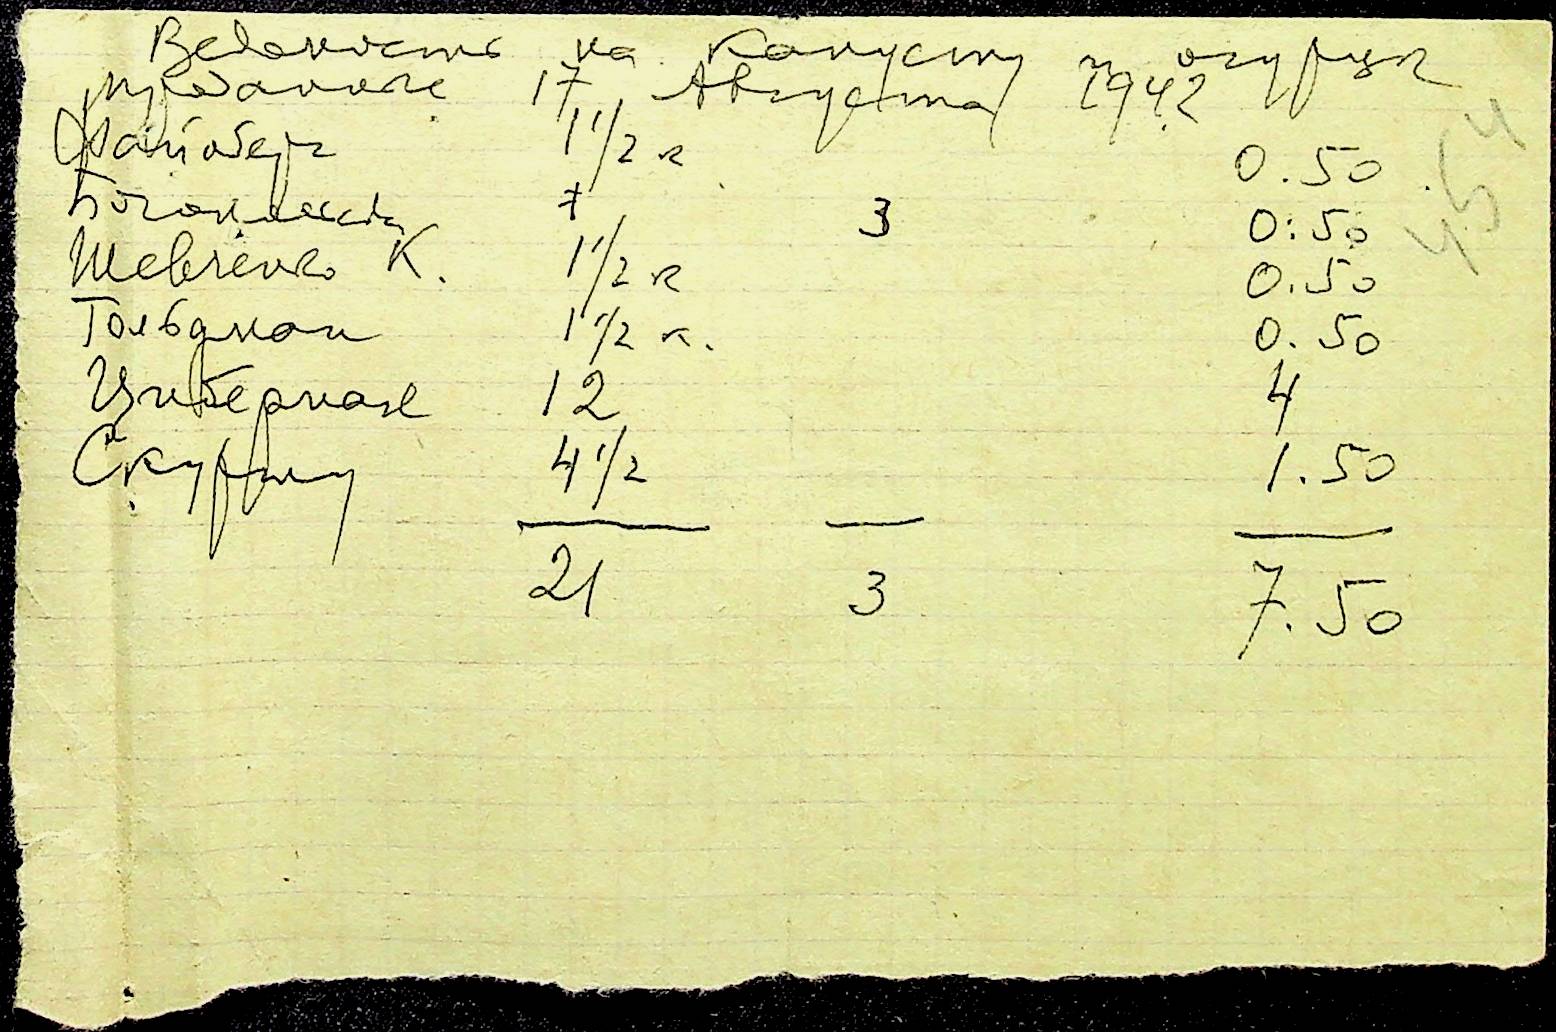 Ведомость на капусту и огурцы
проданые 17 Августа 1942
Файнберг 1 1/2 к 0.50
+ 3 0.50
Шевченко К. 1 1/2 к 0.50
Гольдман 1 1/2 к. 0.50
Цимберман 12 4
4 1/2 1.50
21 3 7.50